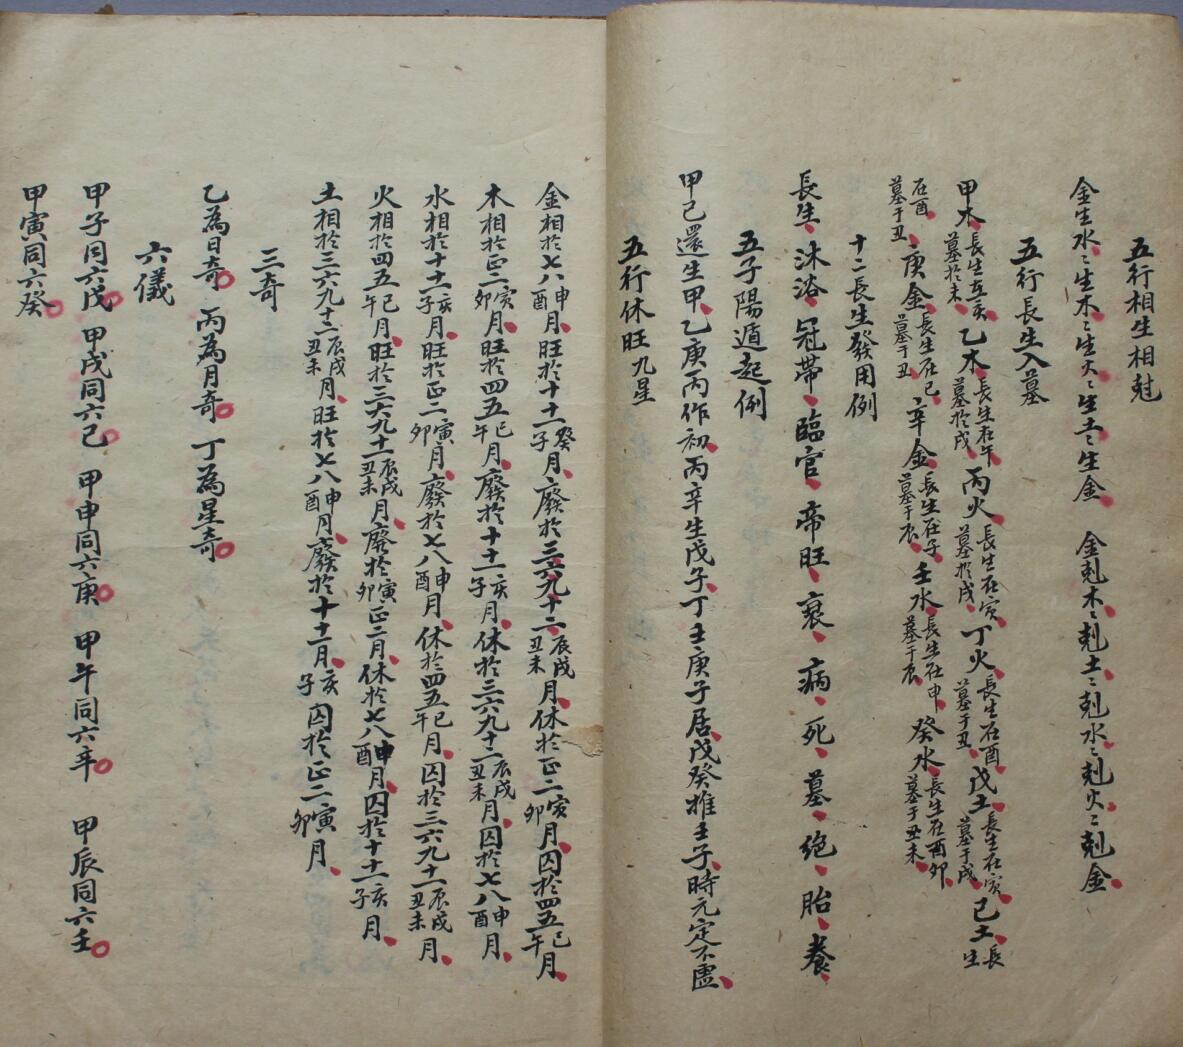 五行相生相尅
金生水〻生木〻生火〻生土〻生金 金剋木〻剋土〻剋水〻剋火〻剋金
五行長生入墓
甲木長生在亥墓於未乙木長生在午墓於戌丙火長生在寅墓於戌丁火長生在酉墓于丑戊土長生在寅墓于戌己土長生
在酉墓于丑庚金長生在巳墓于丑辛金長生在子墓于辰壬水長生在申墓于辰癸水長生在酉卯墓于丑未
十二長生發用例
長生沐浴冠帶臨官帝旺衰病死墓绝胎養
五子陽遁起例
甲己還生甲乙庚丙作初丙辛生戊子丁壬庚子居戊癸推壬子時元定不虛
五行休旺九星
金相於七八申酉月旺於十十一癸子月廢於三六九十二辰戌丑未月休於正二寅卯月囚於四五巳午月
木相於正二寅卯月旺於四五巳午月廢於十十一亥子月休於三六九十二辰戌丑未月囚於七八申酉月
水相於十十一亥子月旺於正二寅卯月廢於七八申酉月休於四五巳午月囚於三六九十一辰戌丑未月
火相於四五巳午月旺於三六九十一辰戌丑未月廢於寅卯正二月休於七八申酉月囚於十十一亥子月
土相於三六九十二辰戌丑未月旺於七八申酉月廢於十十一月亥子囚於正二寅卯月
三奇
乙為日奇 丙為月奇 丁為星奇
六儀
甲子同六戊 甲戌同六己 甲申同六庚 甲午同六辛 甲辰同六壬
甲寅同六癸